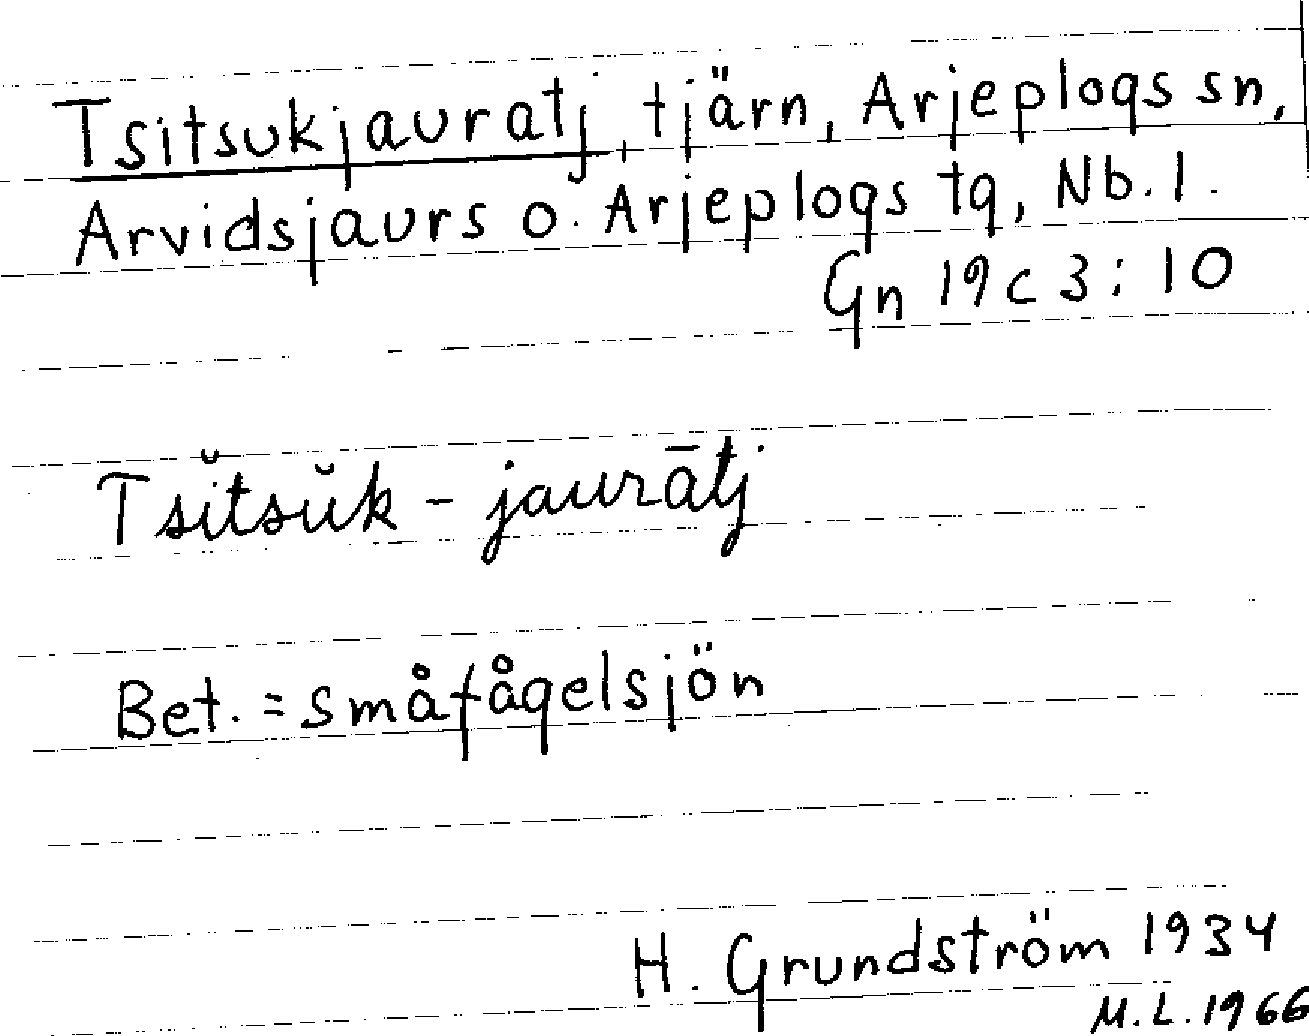 Tsitsukjauratj, tjärn, Arjeplogs sn,
Arvidsjaurs o. Arjeplogs tg, Nb. l.
Gn 19 c 3 : 10
Tsĭtsŭk - jaurātj
Bet. = småfågelsjön
H. Grundström 1934
M.L. 1966